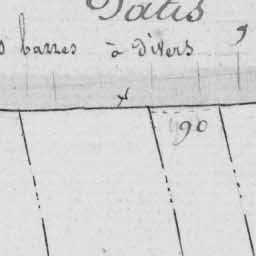 Patis
barres à divers
90